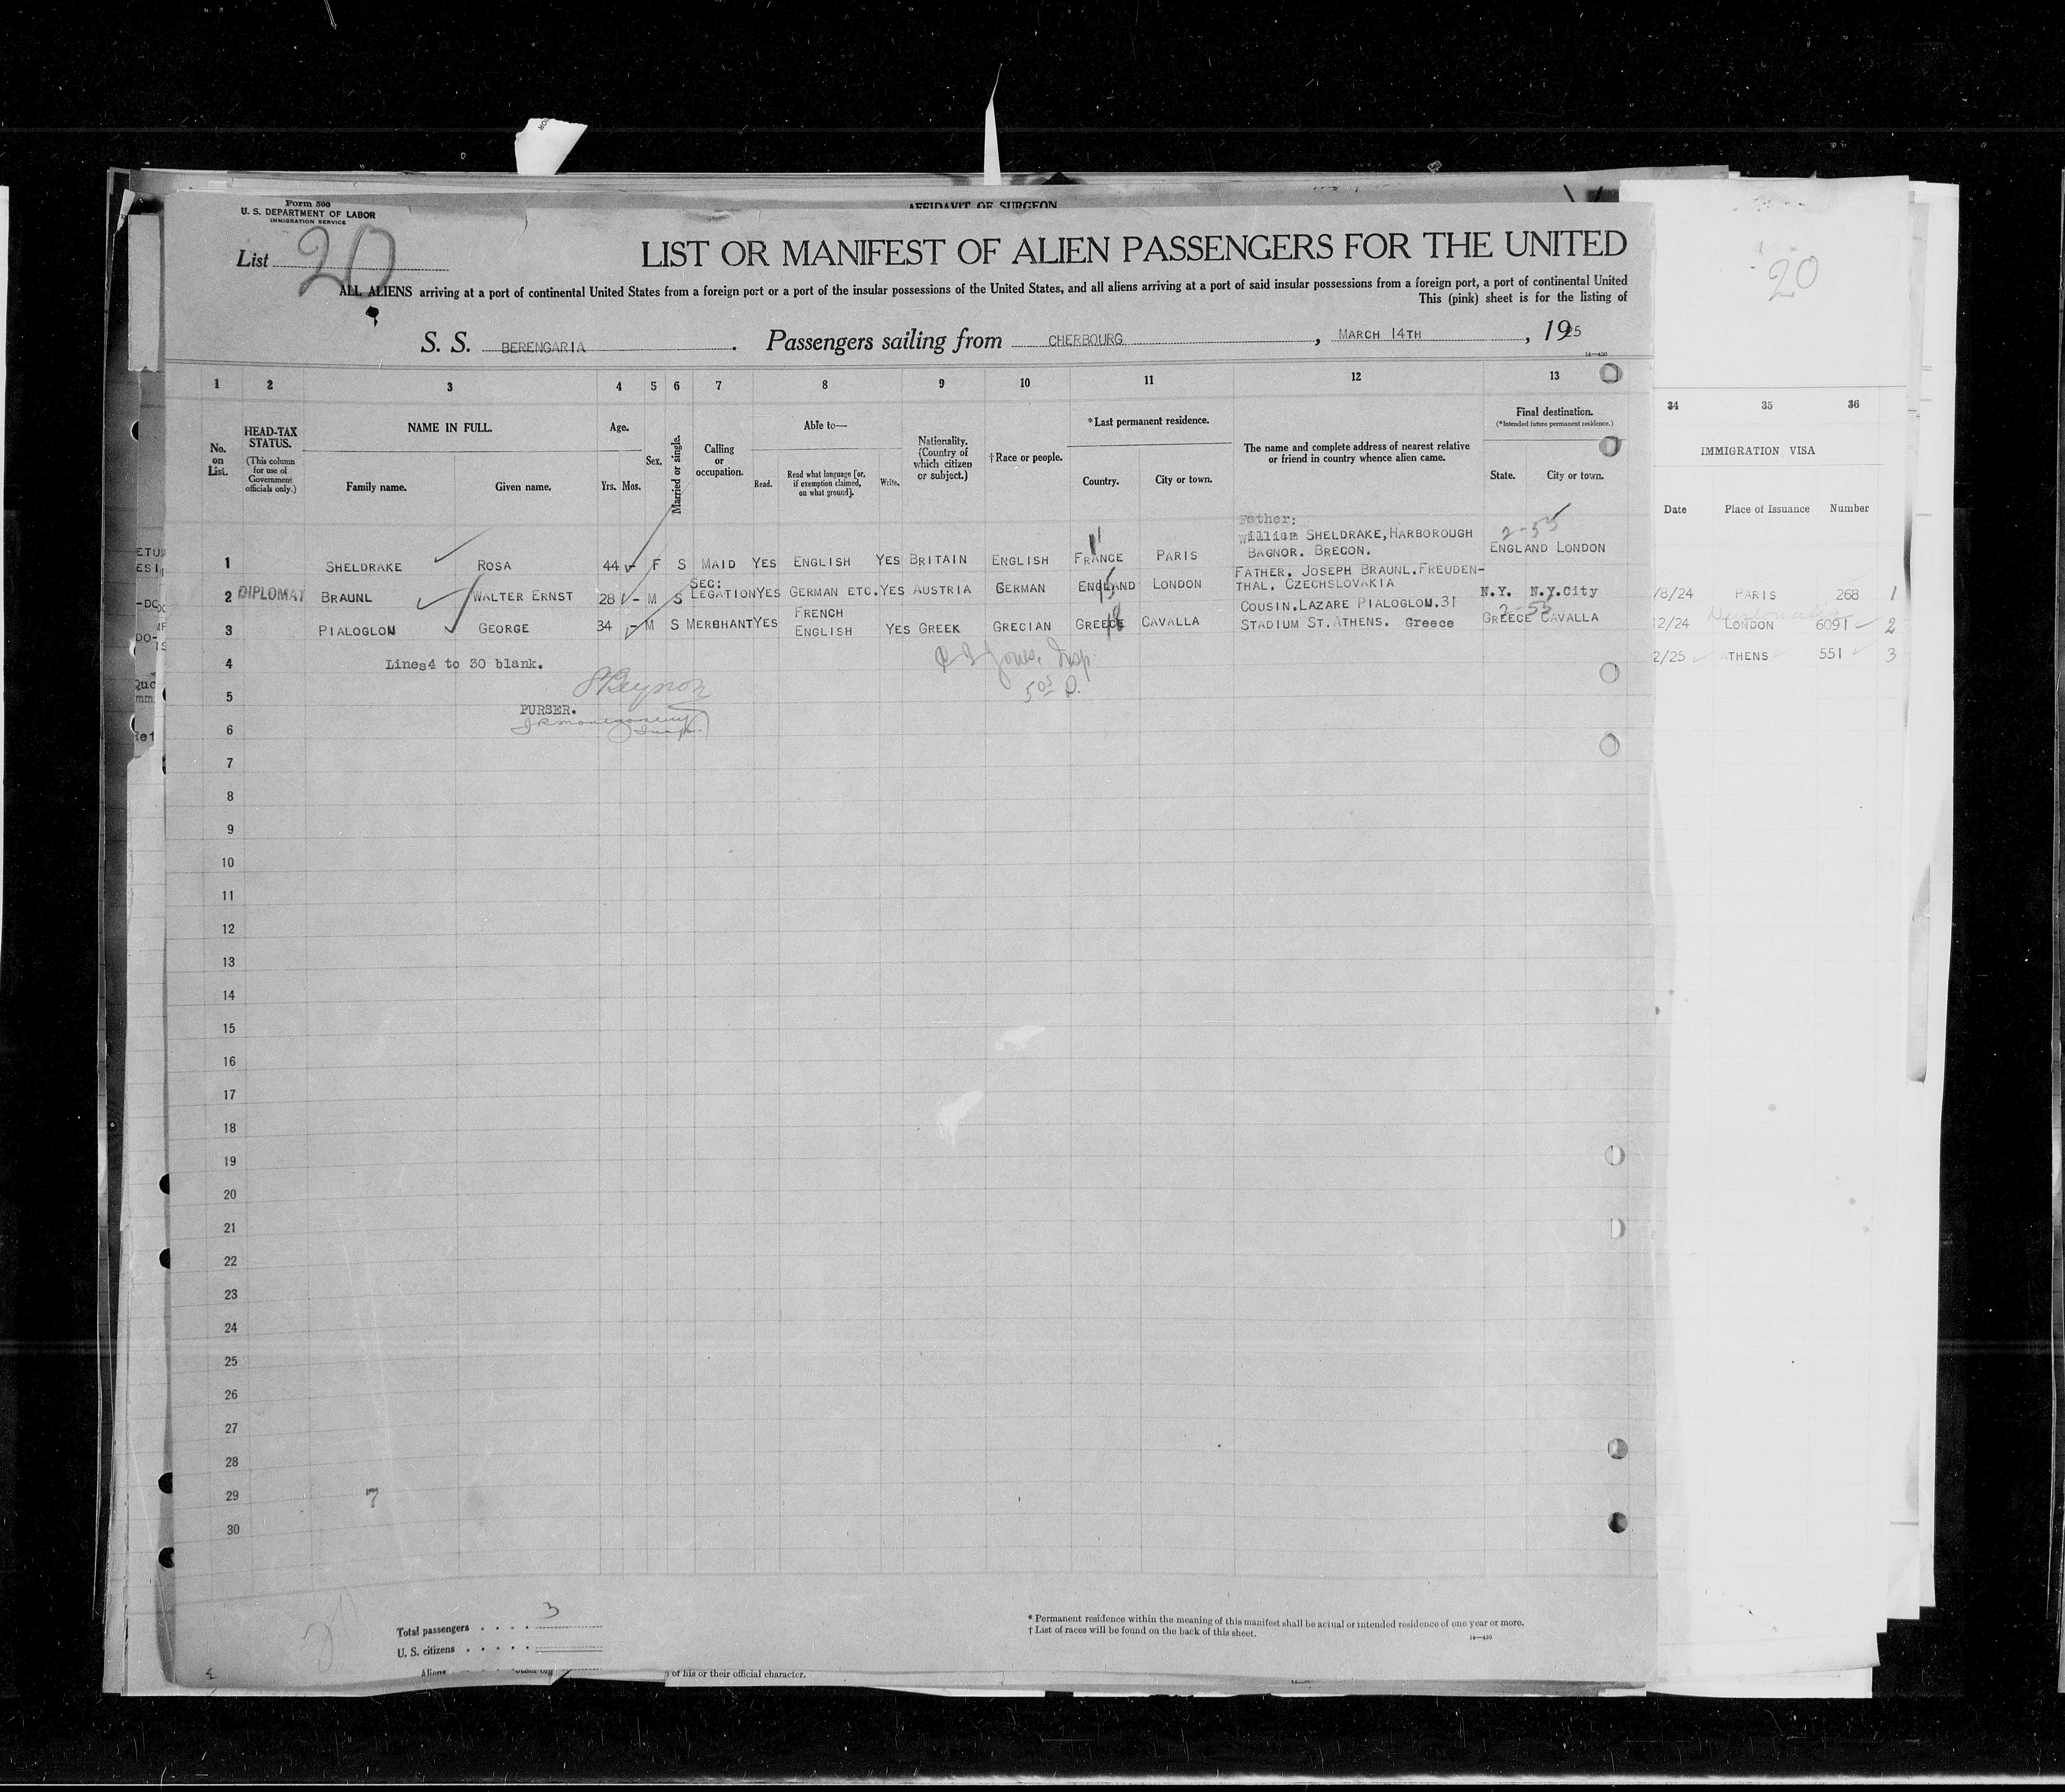 AFFIDAVIT OF SURGEON
Form 500
U. S. DEPARTMENT OF LABOR
IMMIGRATION SERVICE
List 20
LIST OR MANIFEST OF ALIEN PASSENGERS FOR THE UNITED
ALL ALIENS arriving at a port of continental United States from a foreign port or a port of the insular possessions of the United States, and all aliens arriving at a port of said insular possessions from a foreign port, a port of continental United
This (pink) sheet is for the listing of
S. S. BERENGARIA. Passengers sailing from CHERBOURG, MARCH 14TH, 1925
14—430
1 2 3 4 5 6 7 8 9 10 11 12 13
No. on List.
HEAD-TAX STATUS.
(This column for use of Government officials only.)
NAME IN FULL.
Family name. Given name.
Age.
Yrs. Mos.
Sex.
Married or single.
Calling or occupation.
Able to—
Read. Read what language [or, if exemption claimed, on what ground]. Write.
Nationality. (Country of which citizen or subject.)
†Race or people.
*Last permanent residence.
Country. City or town.
The name and complete address of nearest relative or friend in country whence alien came.
Final destination.
(*Intended future permanent residence.)
State. City or town.
Father:
William SHELDRAKE, HARBOROUGH 2-55
1 SHELDRAKE ROSA 44 - F S MAID YES ENGLISH YES BRITAIN ENGLISH FRANCE PARIS BAGNOR. BRECON. ENGLAND LONDON
FATHER. JOSEPH BRAUNL. FREUDEN-
2 DIPLOMAT BRAUNL WALTER ERNST 28 - M S SEC: LEGATION YES GERMAN ETC. YES AUSTRIA GERMAN ENGLAND LONDON THAL. CZECHSLOVAKIA N.Y. N.Y.City
FRENCH COUSIN. LAZARE PIALOGLOU. 31 2-55
3 PIALOGLOU GEORGE 34 - M S MERCHANT YES ENGLISH YES GREEK GRECIAN GREECE CAVALLA STADIUM ST. ATHENS. Greece GREECE CAVALLA
4 Lines 4 to 30 blank.
5
PURSER.
6
7
8
9
10
11
12
13
14
15
16
17
18
19
20
21
22
23
24
25
26
27
28
29 7
30
Total passengers . . . . 3
U. S. citizens . . . . .
Aliens
* Permanent residence within the meaning of this manifest shall be actual or intended residence of one year or more.
† List of races will be found on the back of this sheet.
14—430
of his or their official character.
20
34 35 36
IMMIGRATION VISA
Date Place of Issuance Number
/8/24 PARIS 268 1
2/24 LONDON 6091 2
2/25 ATHENS 551 3